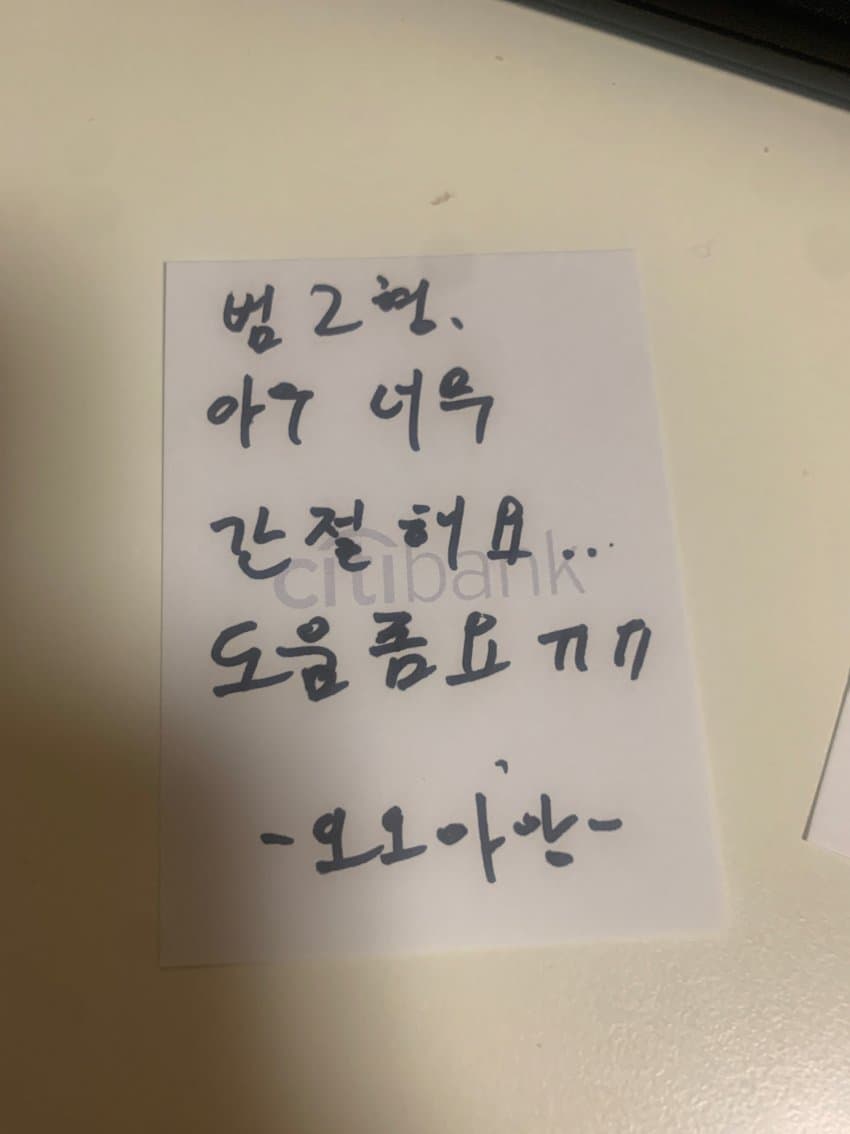 범2형,
아우 너무
간절해요...
citibank
도움좀요 ㅠㅠ
-오오아앙-